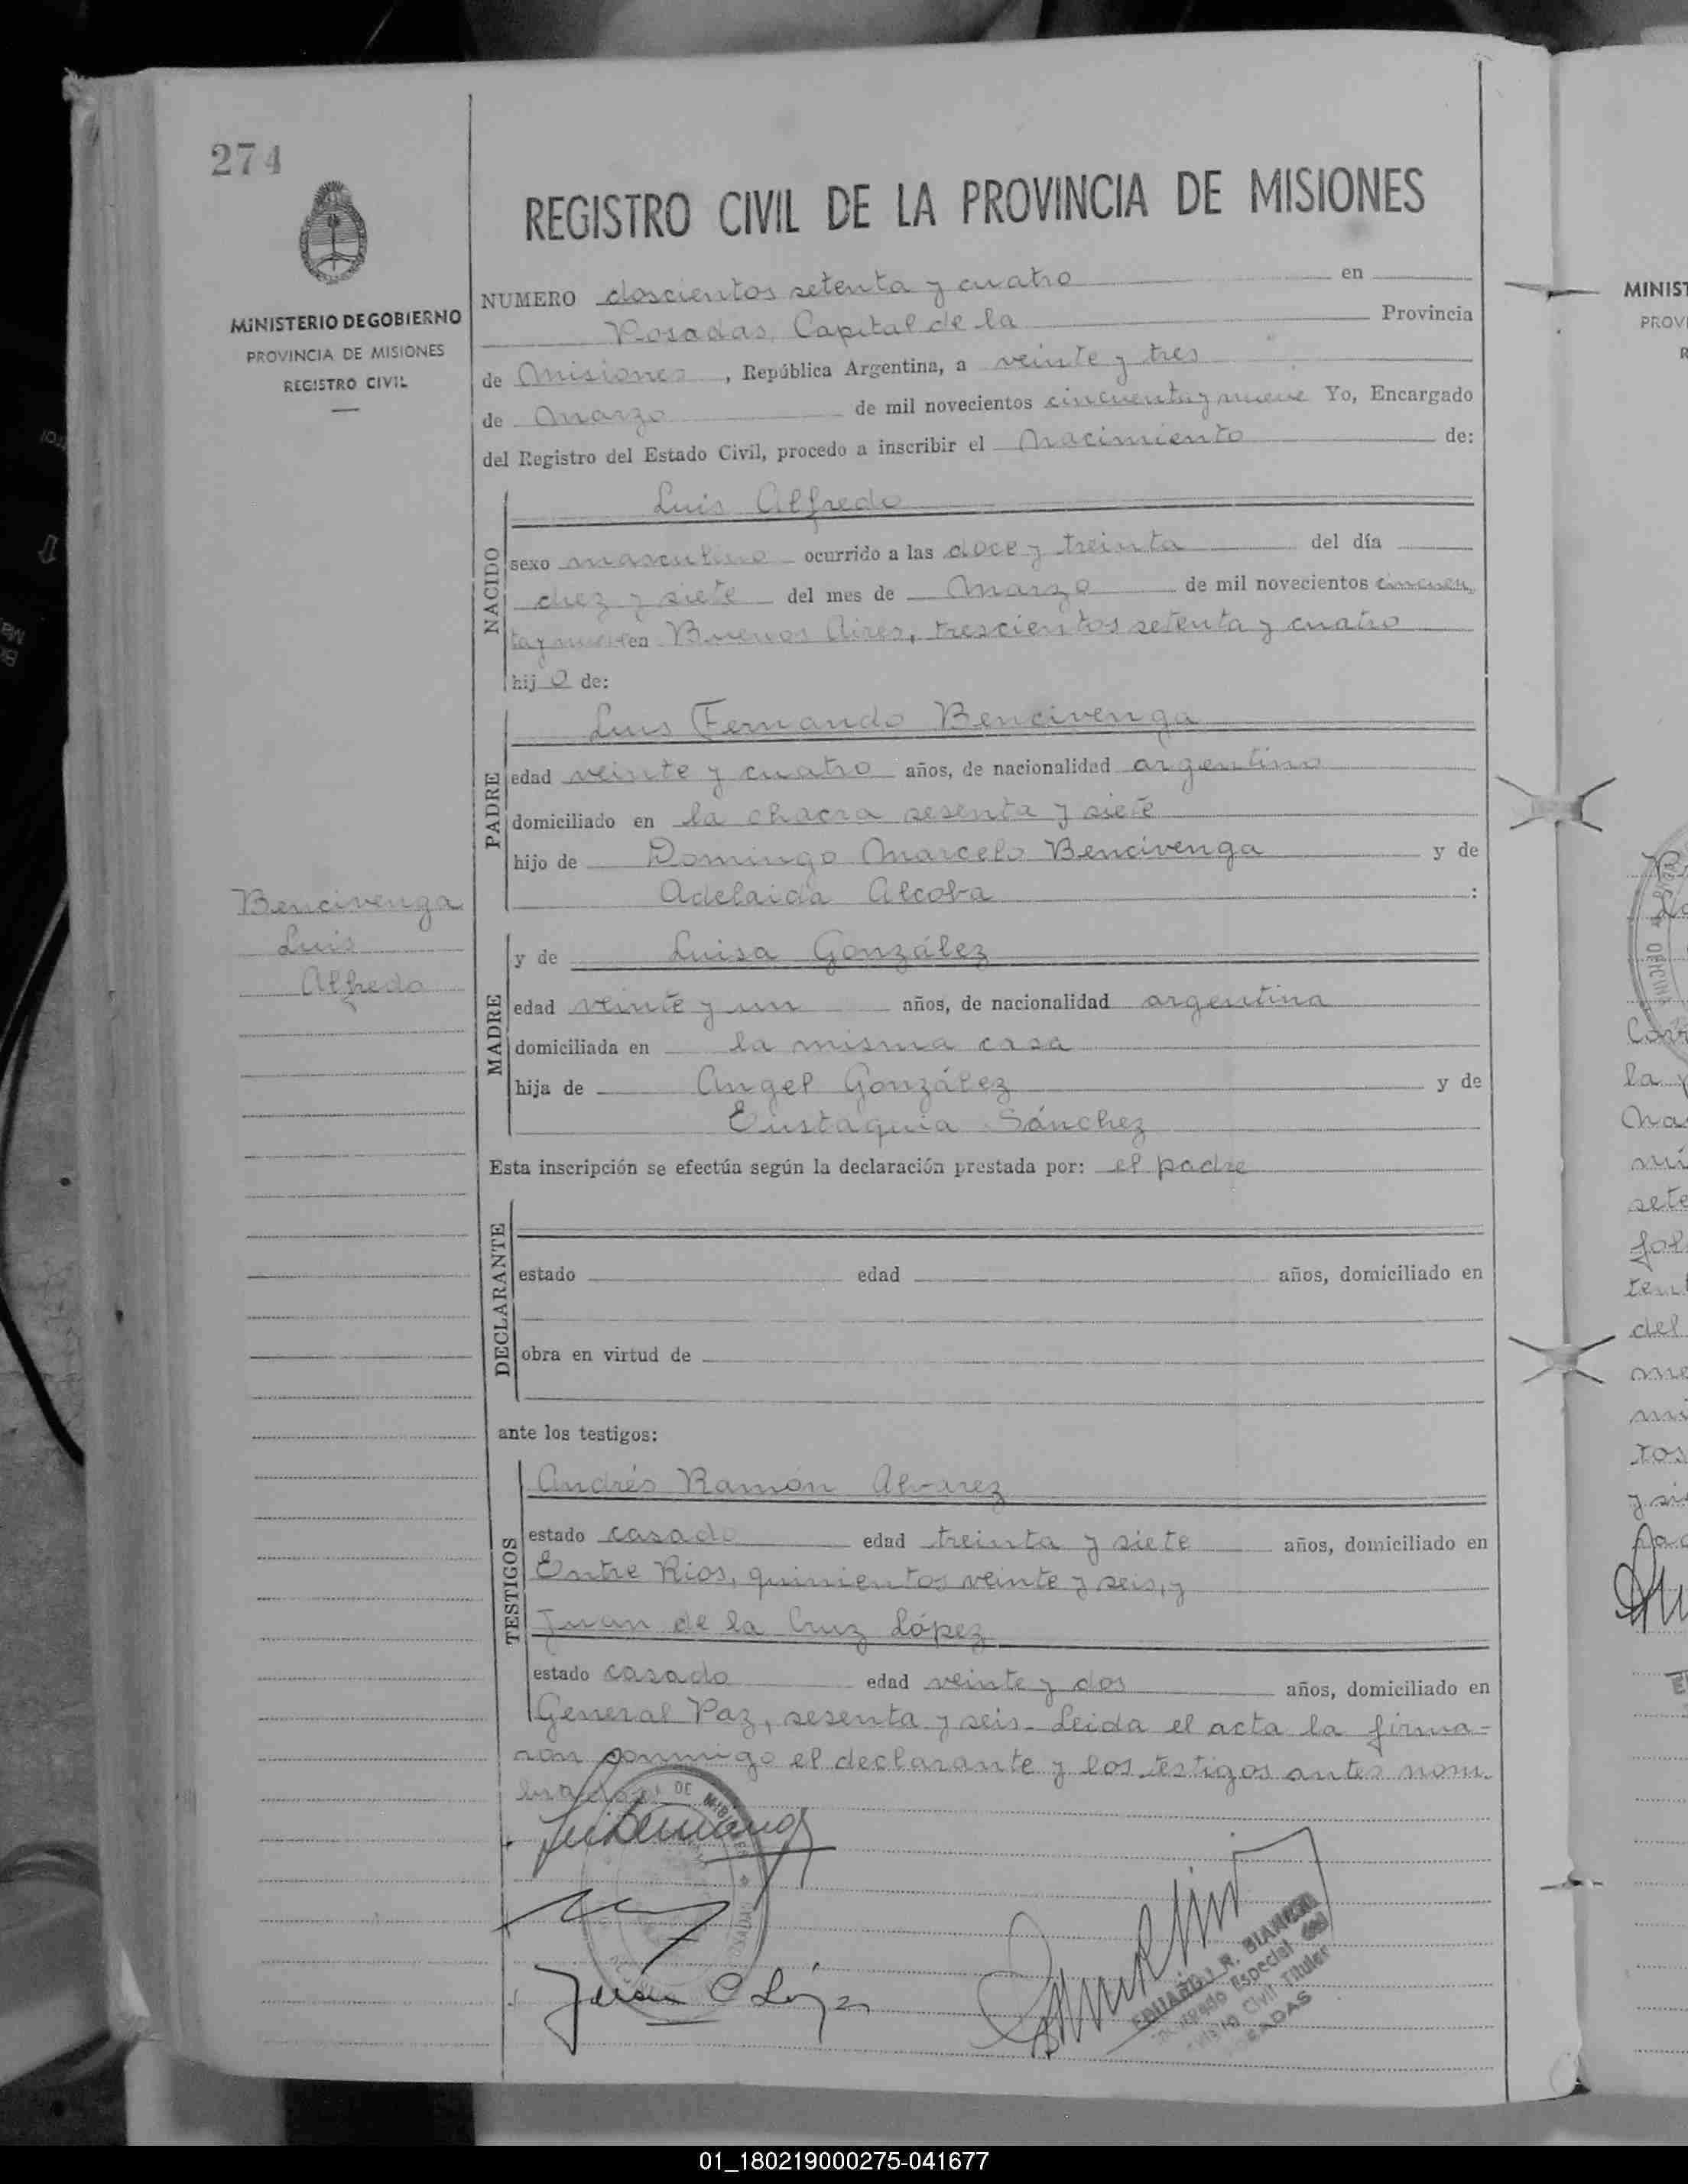 274
MINISTERIO DE GOBIERNO
PROVINCIA DE MISIONES
REGISTRO CIVIL
REGISTRO CIVIL DE LA PROVINCIA DE MISIONES
NUMERO doscientos setenta y cuatro en
Posadas, Capital de la Provincia
de Misiones, República Argentina, a veinte y tres
de Marzo de mil novecientos cincuenta y nueve Yo, Encargado
del Registro del Estado Civil, procedo a inscribir el Nacimiento de:
NACIDO
Luis Alfredo
sexo masculino ocurrido a las doce y treinta del día
diez y siete del mes de Marzo de mil novecientos cincuen
ta y nueve en Buenos Aires, trescientos setenta y cuatro
hijo de:
PADRE
Luis Fernando Bencivenga
edad veinte y cuatro años, de nacionalidad argentino
domiciliado en la chacra sesenta y siete
hijo de Domingo Marcelo Bencivenga y de
Adelaida Alcoba :
Bencivenga
Luis
Alfredo
MADRE
y de Luisa González
edad veinte y un años, de nacionalidad argentina
domiciliada en la misma casa
hija de Angel González y de
Eustaquia Sánchez
Esta inscripción se efectúa según la declaración prestada por: el padre
DECLARANTE
estado edad años, domiciliado en
obra en virtud de
ante los testigos:
TESTIGOS
Andrés Ramón Alvarez
estado casado edad treinta y siete años, domiciliado en
Entre Rios, quinientos veinte y seis, y
Juan de la Cruz López
estado casado edad veinte y dos años, domiciliado en
General Paz, sesenta y seis. Leida el acta la firma-
ron conmigo el declarante y los testigos antes nom
brados
Juan C López
EDUARDO R.
Especial del
Civil Titular
POSADAS
MINIST
PROV
R
la
sete
del
01_180219000275-041677